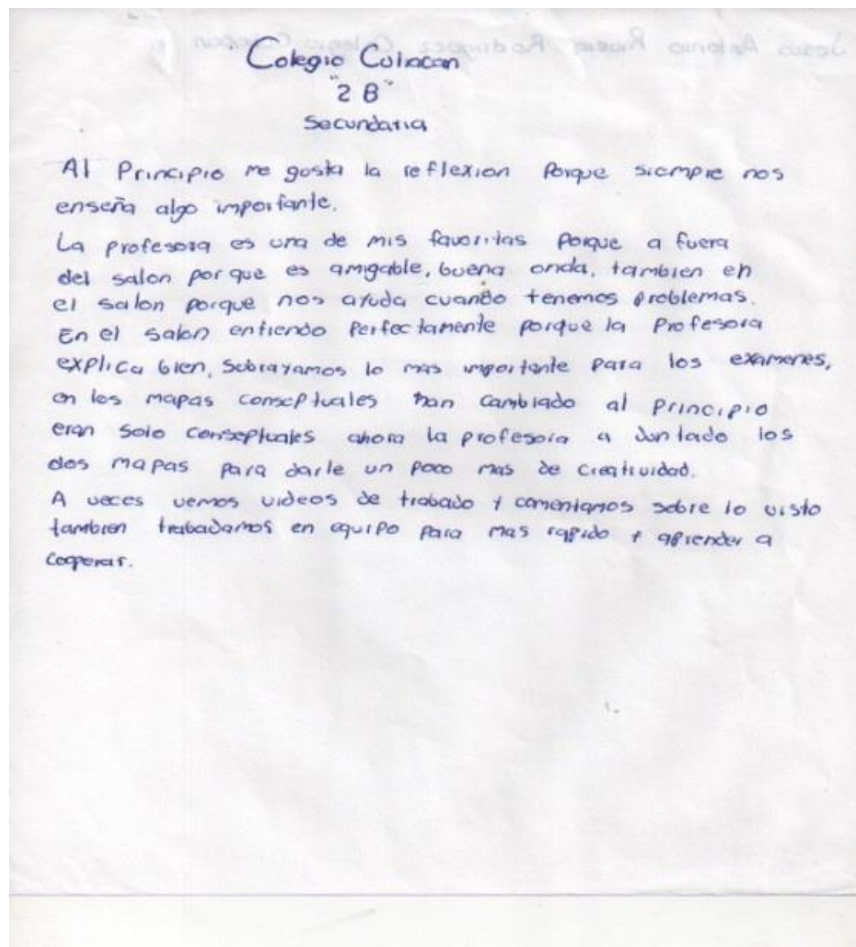 Jesus Antonio Rivera Rodriguez Colegio
Colegio Culiacan
"2 B"
Secundaria
Al Principio me gosta la reflexion Porque siempre nos
enseña algo importante.
La profesora es una de mis favoritas porque a fuera
del salon por que es amigable, buena onda, tambien en
el salon porque nos ayuda cuando tenemos problemas.
En el salon entiendo Perfectamente porque la Profesora
explica bien, subrayamos lo mas importante para los examenes,
en los mapas conseptuales han cambiado al principio
eran solo conseptuales ahora la profesora a Juntado los
dos mapas para darle un poco mas de creatividad.
A veces vemos videos de trabajo y comentamos sobre lo visto
tambien trabajamos en equipo para mas rapido y aprender a
cooperar.